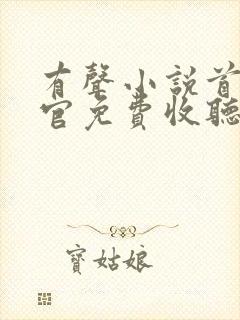 有聲小説首
官免費收聽
寶姑娘